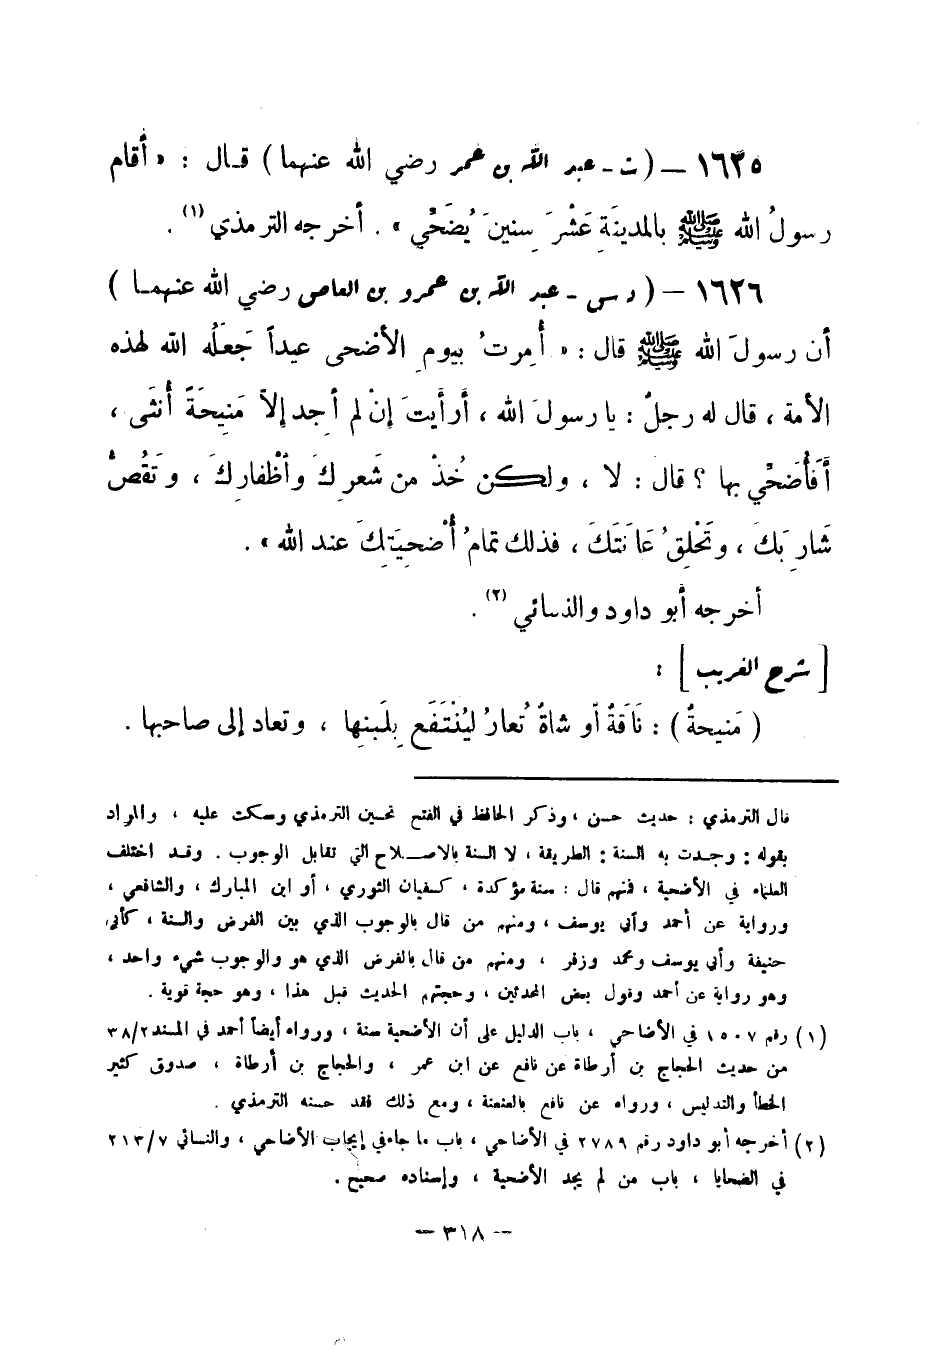 ١٦٢٥ – ( ت - عبد الله بن عمر رضي الله عنهما ) قال : « أقام
رسولُ الله ﷺ بالمدينَةِ عَشْرَ سِنينَ يُضَحِّي » . أخرجه الترمذي (١) .
١٦٢٦ – ( د س - عبد الله بن عمرو بن العاص رضي الله عنهما )
أن رسولَ الله ﷺ قال : « أُمِرتُ بيومِ الأضْحى عيداً جَعَلَه الله لهذه
الأمة ، قال له رجلٌ : يا رسولَ الله ، أرأيتَ إنْ لم أجِد إلا مَنيحَةً أُنثَى ،
أَفَأُضَحِّي بها ؟ قال : لا ، ولكن خُذْ من شَعرِكَ وأظْفارِكَ ، وتَقُصُّ
شَارِبَكَ ، وتَحْلِقُ عَانَتَكَ ، فذلك تمامُ أُضْحِيَتِكَ عند الله » .
أخرجه أبو داود والنسائي (٢) .
[ شرح الغريب ] :
( مَنيحةٌ ) : نَاقةٌ أو شاةٌ تُعارُ ليُنْتَفَع بِلَبنِها ، وتعاد إلى صاحبها .
قال الترمذي : حديث حسن ، وذكر الحافظ في الفتح تحسين الترمذي وسكت عليه ، والمراد
بقوله : وجدت به السنة : الطريقة ، لا السنة بالاصلاح التي تقابل الوجوب . وقد اختلف
العلماء في الأضحية ، فمنهم قال : سنة مؤكدة ، كسفيان الثوري ، أو ابن المبارك ، والشافعي ،
ورواية عن أحمد وأبي يوسف ، ومنهم من قال بالوجوب الذي بين الفرض والسنة ، كأبي
حنيفة وأبي يوسف ومحمد وزفر ، ومنهم من قال بالفرض الذي هو والوجوب شيء واحد ،
وهو رواية عن أحمد وقول بعض المحدثين ، وحجتهم الحديث قبل هذا ، وهو حجة قوية .
(١) رقم ١٥٠٧ في الأضاحي ، باب الدليل على أن الأضحية سنة ، ورواه أيضاً أحمد في المسند ٣٨/٢
من حديث الحجاج بن أرطاة عن نافع عن ابن عمر ، والحجاج بن أرطاة ، صدوق كثير
الخطأ والتدليس ، ورواه عن نافع بالعنعنة ، ومع ذلك فقد حسنه الترمذي .
(٢) أخرجه أبو داود رقم ٢٧٨٩ في الأضاحي ، باب ما جاء في إيجاب الأضاحي ، والنسائي ٢١٣/٧
في الضحايا ، باب من لم يجد الأضحية ، وإسناده صحيح .
– ٣١٨ –